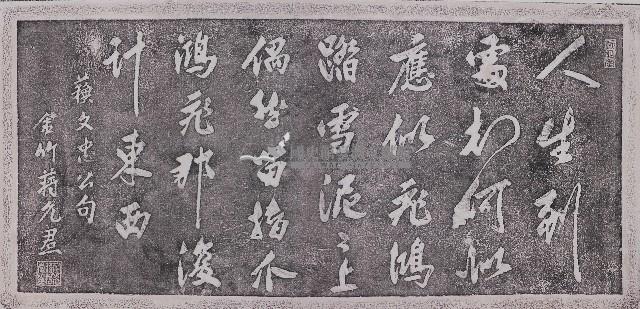 人生到
處知何似
應似飛鴻
踏雪泥〻上
偶然留指爪
鴻飛那復
計東西
蘇文忠公句
金竹蔣允焄